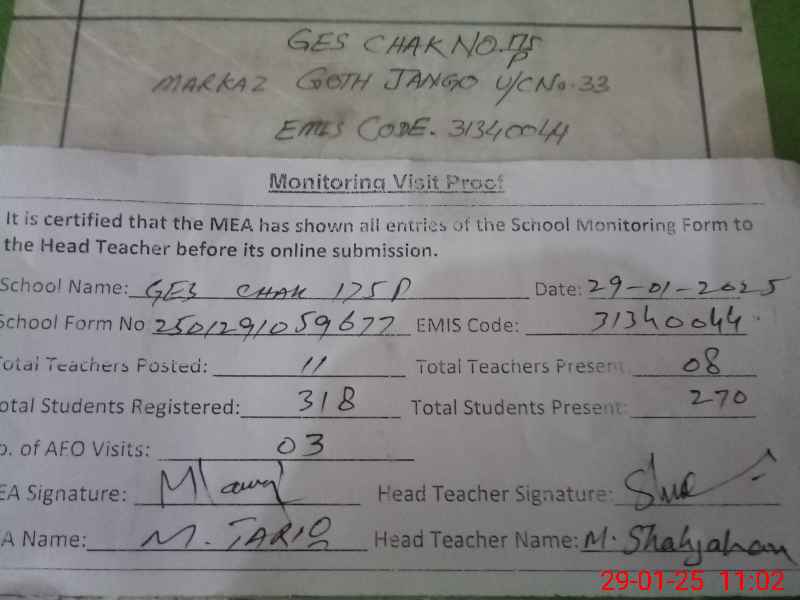 GES CHAK NO. 175
P
MARKAZ GOTH JANGO U/C No. 33
EMIS CODE. 31340044
Monitoring Visit Proof
It is certified that the MEA has shown all entries of the School Monitoring Form to
the Head Teacher before its online submission.
School Name: GES CHAK 175P Date: 29-01-2025
School Form No 2501291059677 EMIS Code: 31340044
Total Teachers Posted: 11 Total Teachers Present: 08
otal Students Registered: 318 Total Students Present: 270
o. of AEO Visits: 03
EA Signature: Head Teacher Signature:
A Name: M. TARIQ Head Teacher Name: M. Shahjahan
29-01-25 11:02